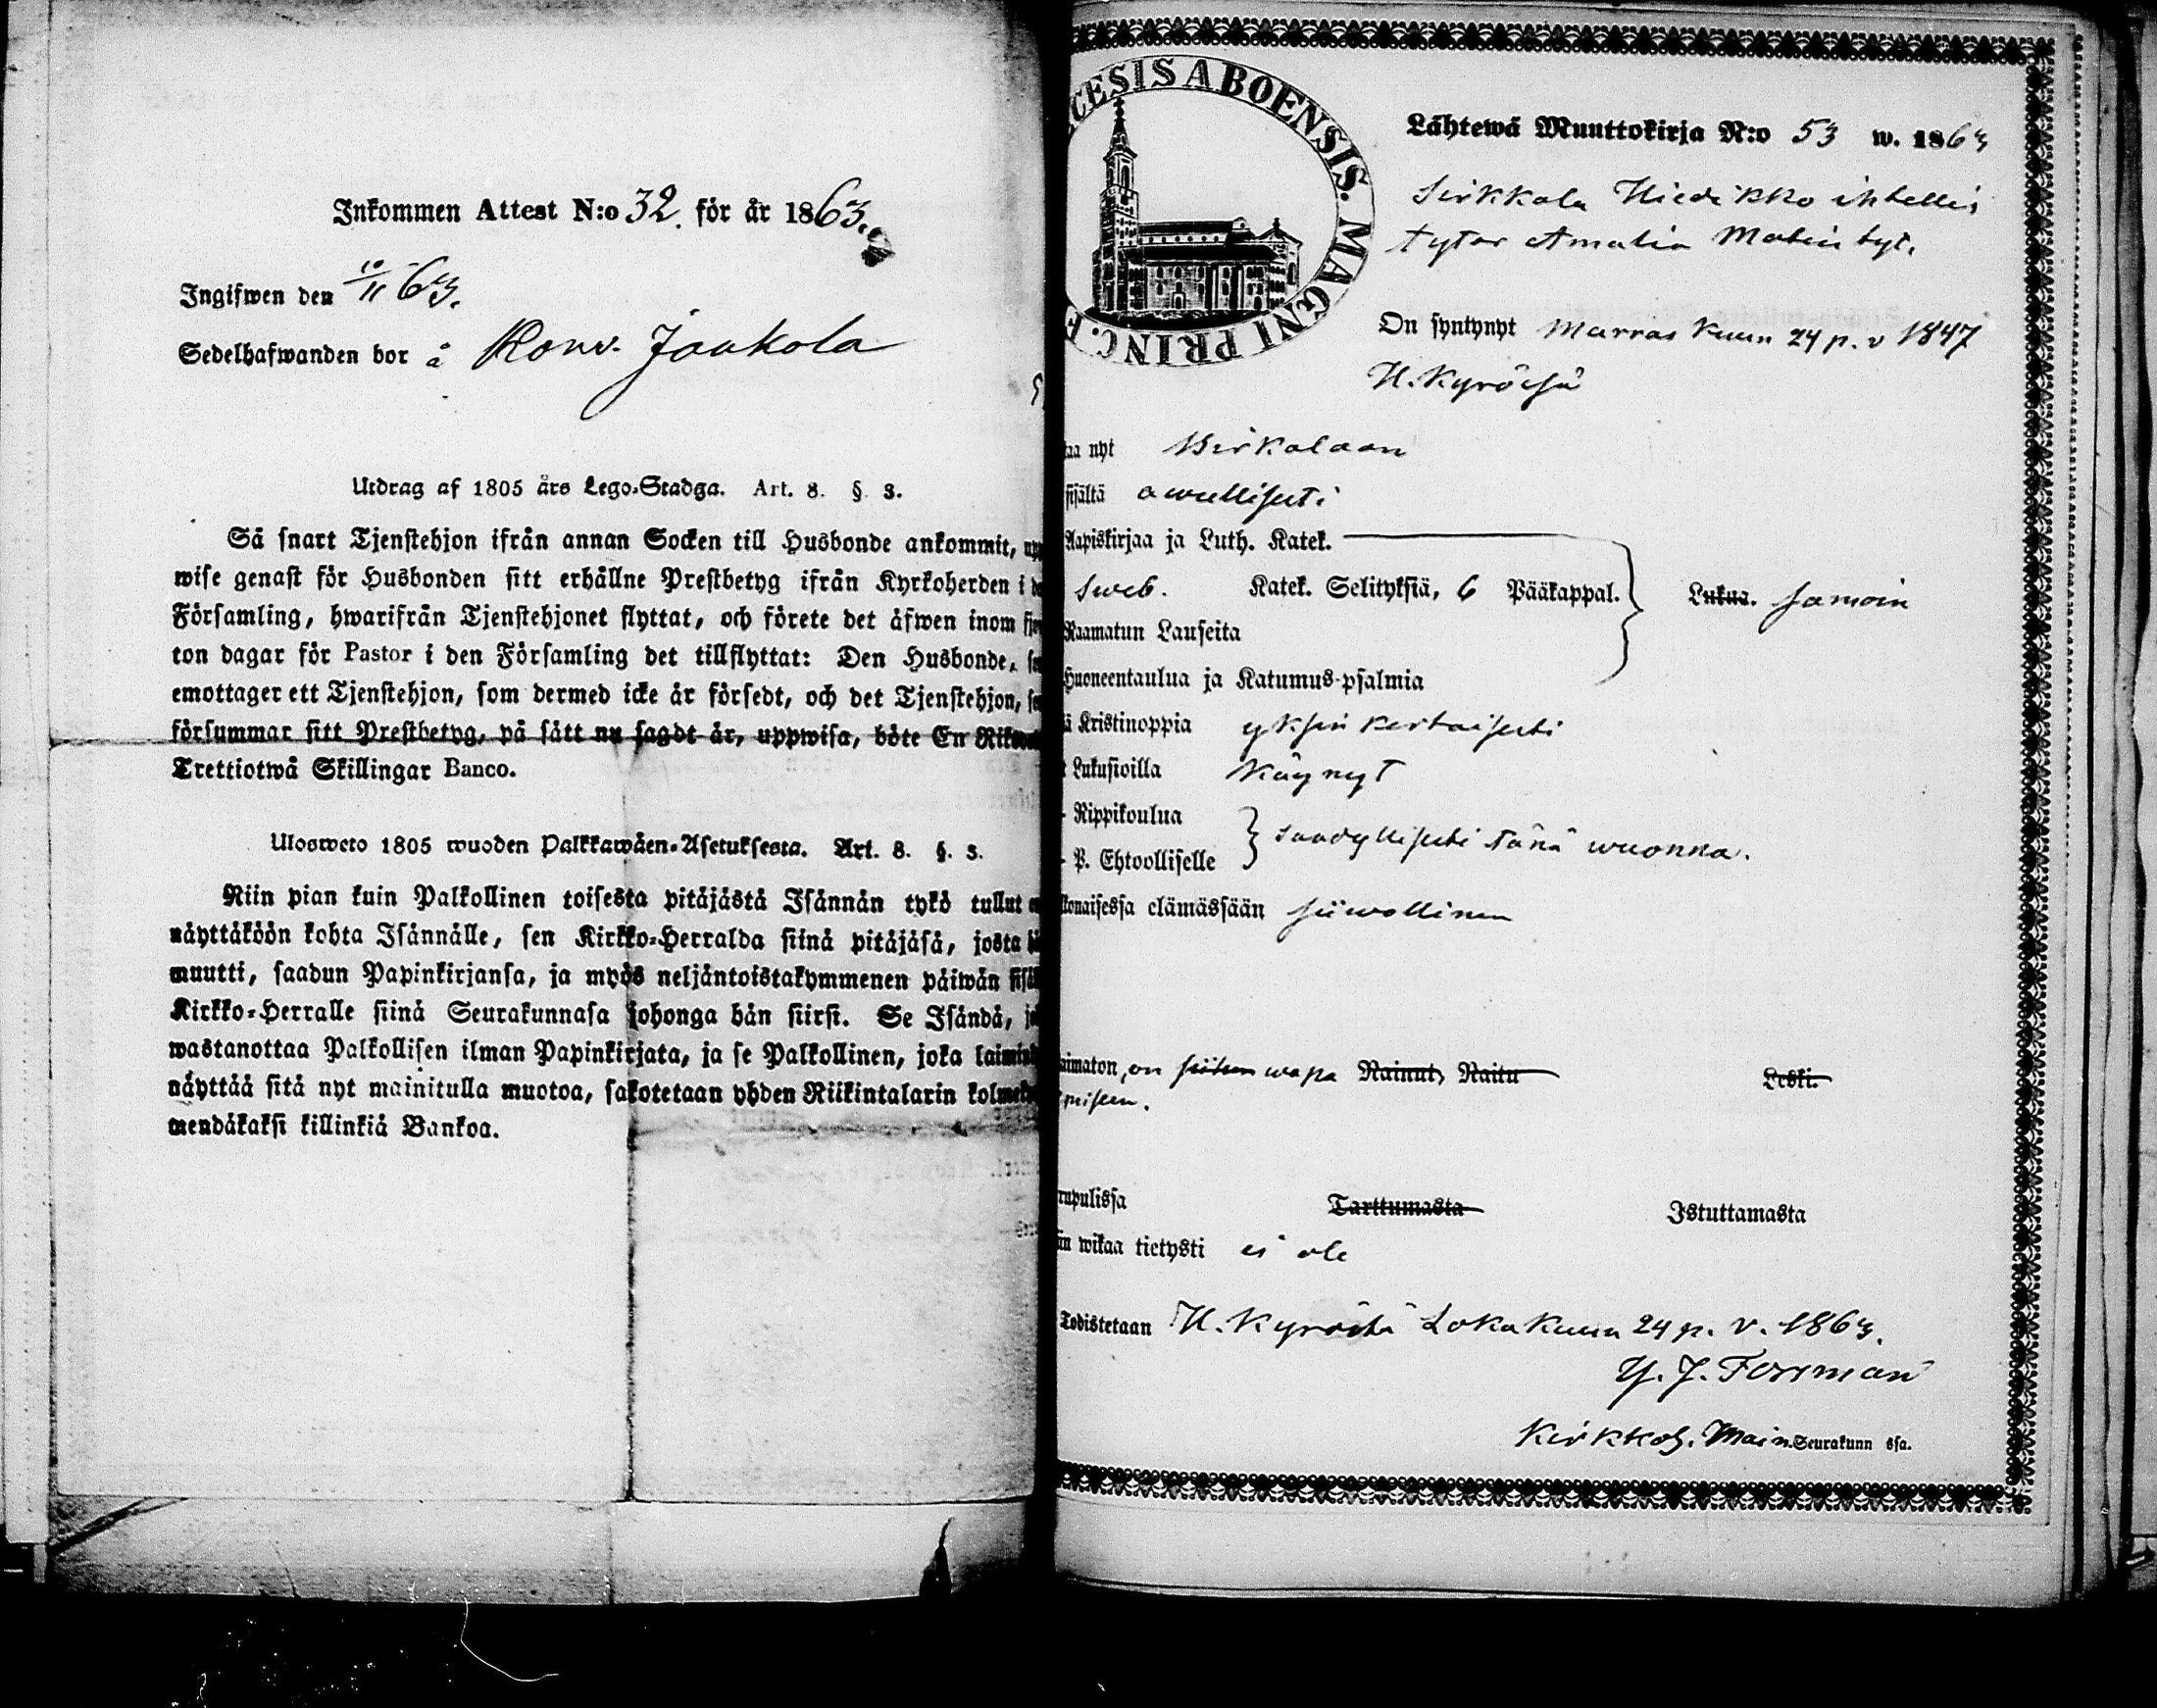 Inkommen Attest N:o 32. för år 1863.
Ingifwen den 10/11 63.
Sedelhafwanden bor å Konv. Jaukola
Utdrag af 1805 års Lego-Stadga. Art. 8. § 3.
Så snart Tjenstehjon ifrån annan Socken till Husbonde ankommit, upp
wise genast för Husbonden sitt erhållne Prestbetyg ifrån Kyrkoherden i de
Församling, hwarifrån Tjenstehjonet flyttat, och förete det äfwen inom fjor
ton dagar för Pastor i den Församling det tillflyttat: Den Husbonde, so
emottager ett Tjenstehjon, som dermed icke är försedt, och det Tjenstehjon, so
försummar sitt Prestbetyg, på sätt nu sagdt är, uppwisa, böte En Riks
Trettiotwå Skillingar Banco.
Ulosweto 1805 wuoden Palkkawäen-Asetuksesta. Art. 8. §. 3.
Niin pian kuin Palkollinen toisesta pitäjästä Isännän tykö tullut on
näyttäköön kohta Isännälle, sen Kirkko-Herralda siinä pitäjäsä, josta hä
muutti, saadun Papinkirjansa, ja myös neljäntoistakymmenen päiwän sisä
Kirkko-Herralle siinä Seurakunnasa johonga hän siirsi. Se Isändä, jo
wastanottaa Palkollisen ilman Papinkirjata, ja se Palkollinen, joka laimin
näyttää sitä nyt mainitulla muotoa, sakotetaan yhden Riikintalarin kolmek
mendäkaksi killinkiä Bankoa.
CESIS ABOENSIS. MAGNI PRINC. F
Lähtewä Muuttokirja N:o 53 w. 1863
Sirkkala Hiedikko itsellis
tytär Amalia Matintyt.
On syntynyt Marras kuun 24 p. v 1847
H. Kyrössä
taa nyt Birkalaan
sisältä awullisesti
Aapiskirjaa ja Luth. Katek.
Sweb. Katek. Selityksiä, 6 Pääkappal. Lukua. samoin
Raamatun Lauseita
Huoneentaulua ja Katumus-psalmia
ä Kristinoppia yksinkertaisesti
t Lukusioilla käynyt
Rippikoulua
P. Ehtoolliselle säädyllisesti tänä wuonna.
konaisessa elämässään siiwollinen
aimaton, on siihen wapa Nainut, Naitu Leski.
misen.
rupulissa Tarttumasta Istuttamasta
in wikaa tietysti ei ole
Todistetaan H. Kyröstä Lokakuun 24 p. v. 1863.
Y. J. Forsman
Kirkkoh. Main. Seurakunn ssa.